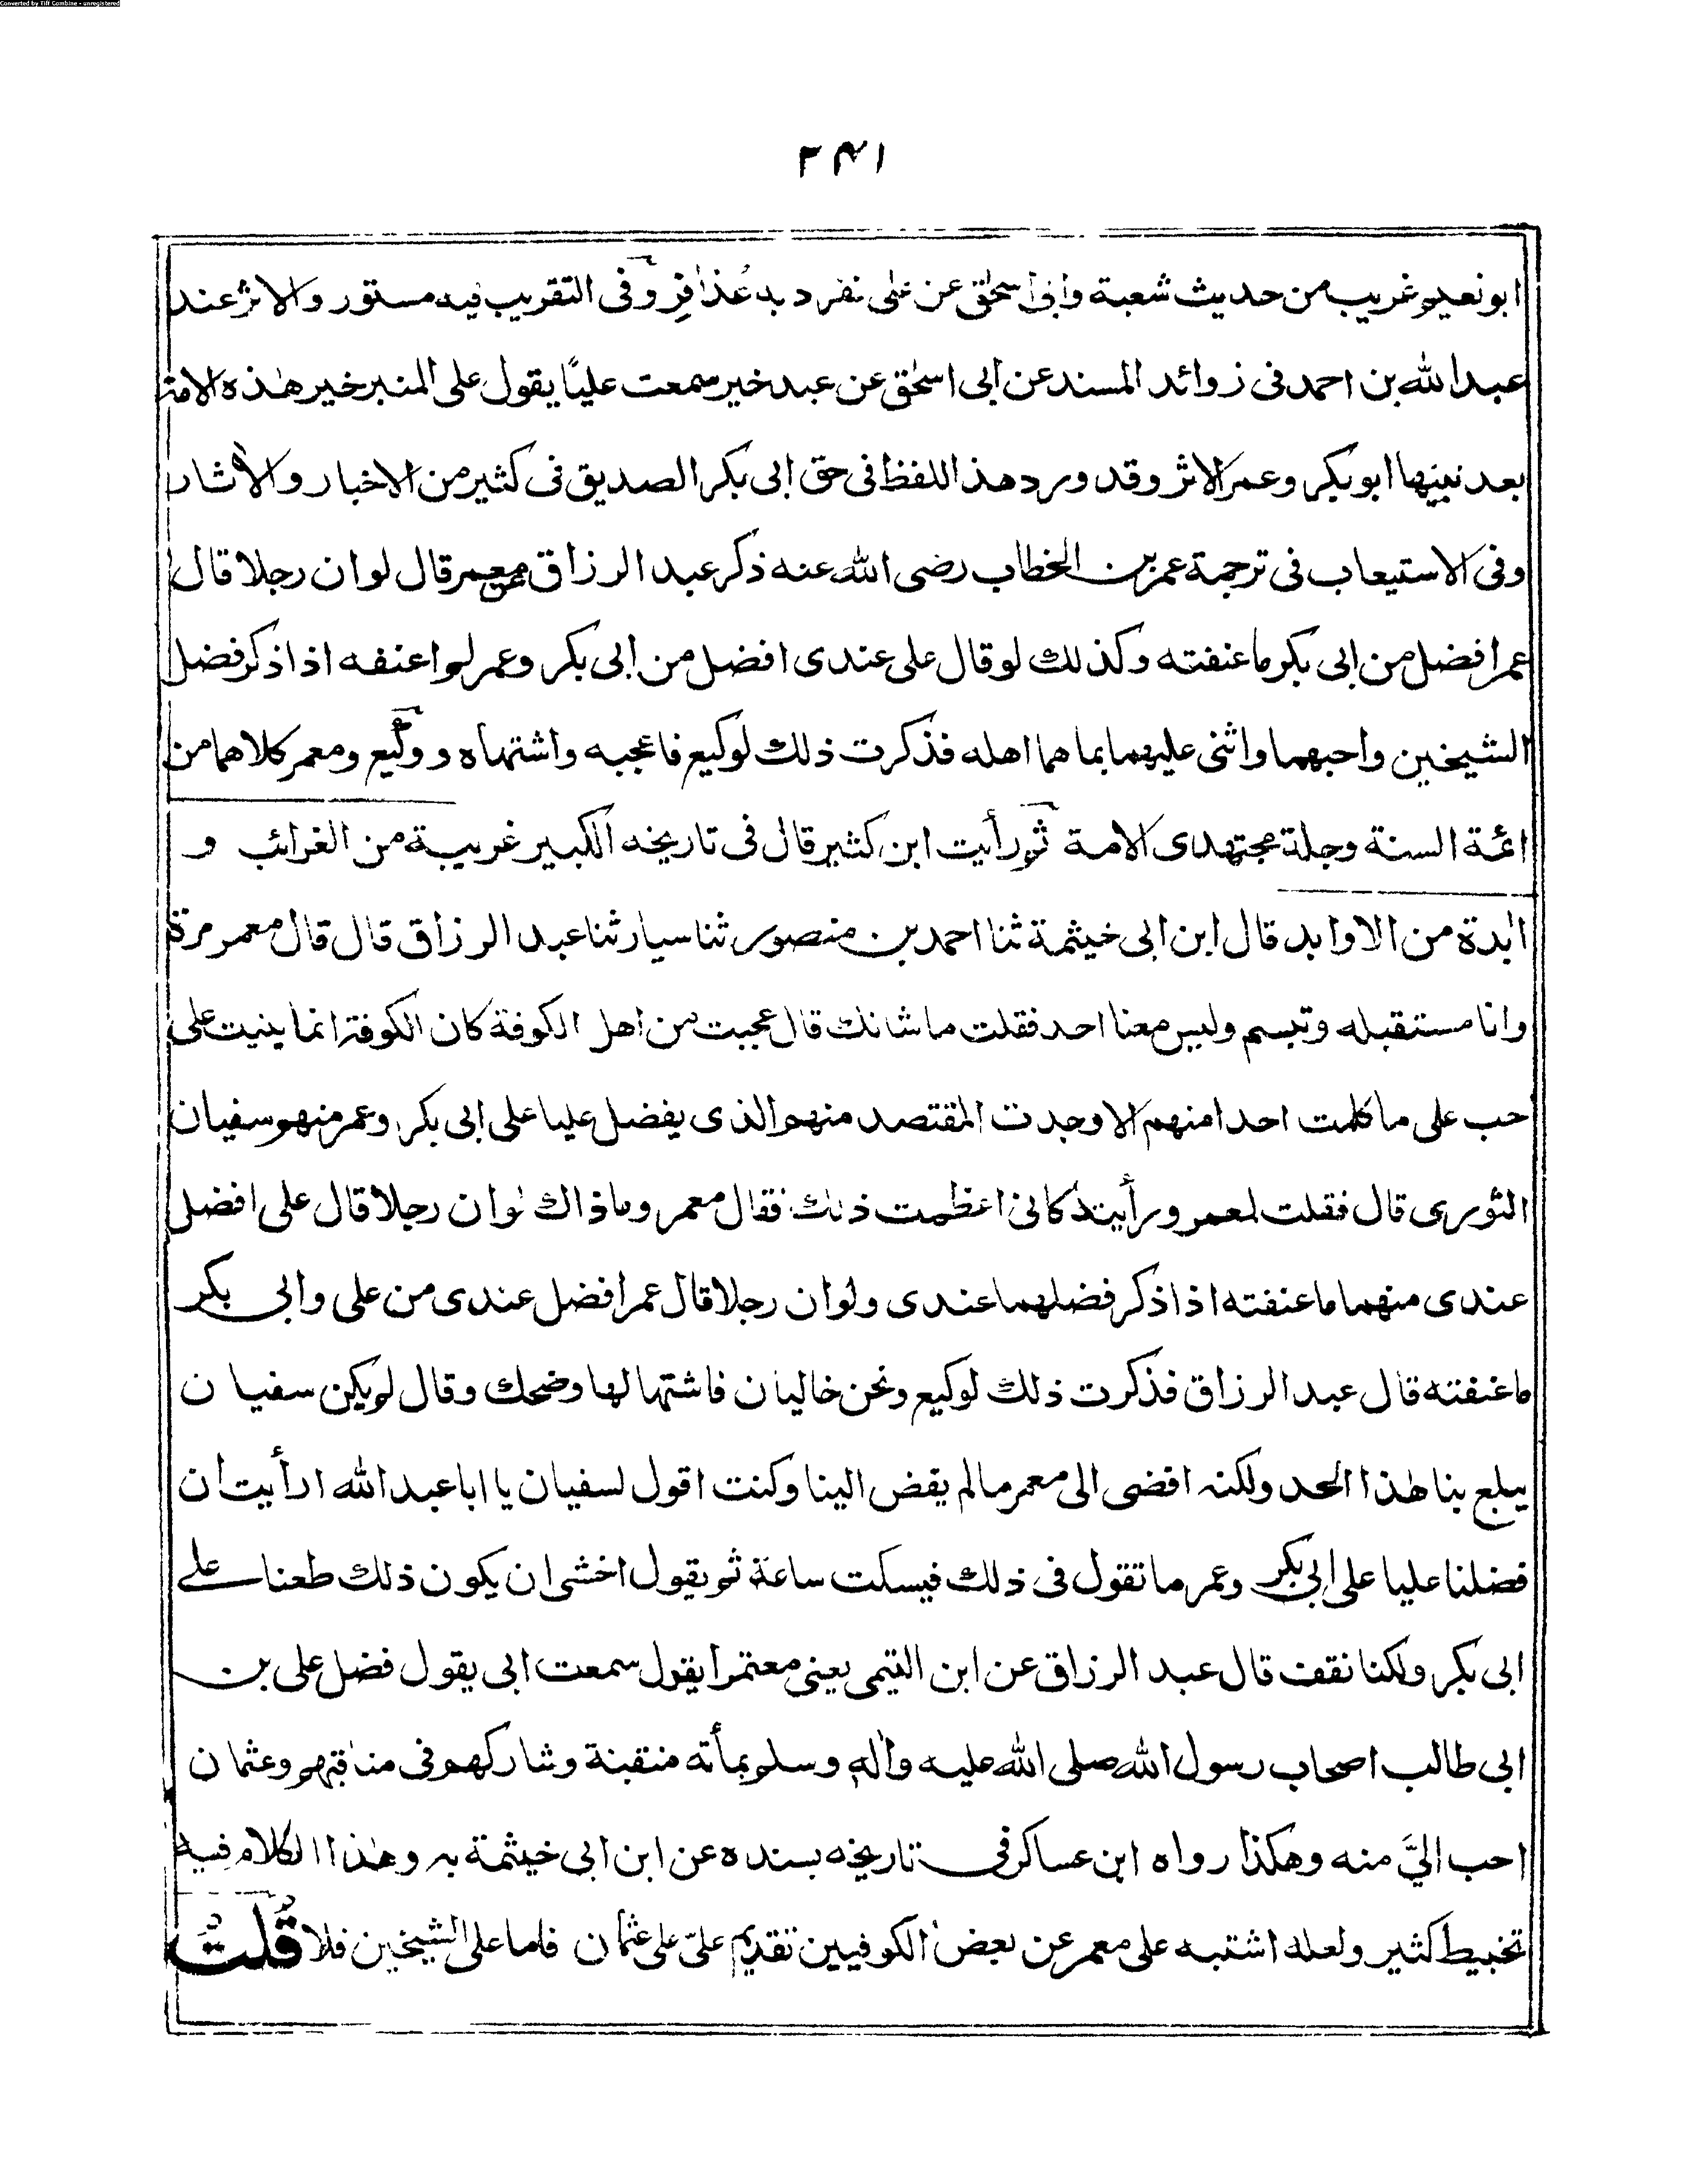 Converted by Tiff Combine - unregistered
٢٤١
ابونعيم غريب من حديث شعبة وابى اسحٰق عن على تفرد به عُذافِر وفى التقريب فيه مستور والاثر عند
عبدالله بن احمد فى زوائد المسند عن ابى اسحٰق عن عبد خير سمعت عليًا يقول على المنبر خير هٰذه الامة
بعد نبيها ابو بكر وعمر الاثر وقد ورد هذا اللفظ فى حق ابى بكر الصديق فى كثير من الاخبار والأثار
وفى الاستيعاب فى ترجمة عمر بن الخطاب رضى الله عنه ذكر عبد الرزاق عن معمر قال لو ان رجلا قال
عمر افضل من ابى بكر ما عنفته وكذلك لو قال على عندى افضل من ابى بكر وعمر لم اعنفه اذا ذكر فضل
الشيخين واحبهما واثنى عليهما بما هما اهله فذكرت ذلك لوكيع فاعجبه واشتهاه ووكيع ومعمر كلاهما من
ائمة السنة وجلة مجتهدى الامة ثم رأيت ابن كثير قال فى تاريخه الكبير غريبة من الغرائب و
اٰبدة من الاوابد قال ابن ابى خيثمة ثنا احمد بن منصور ثنا سيار ثنا عبد الرزاق قال قال معمر مرة
وانا مستقبله وتبسم وليس معنا احد فقلت ما شانك قال عجبت من اهل الكوفة كان الكوفة انما بنيت على
حب على ما كلمت احدا منهم الا وجدت المقتصد منهم الذى يفضل عليا على ابى بكر وعمر منهم سفيان
الثورى قال فقلت لمعمر ورأيته كانى اعظمت ذلك فقال معمر وما ذاك لو ان رجلا قال على افضل
عندى منهما ما عنفته اذا ذكر فضلهما عندى ولو ان رجلا قال عمر افضل عندى من على وابى بكر
ما عنفته قال عبد الرزاق فذكرت ذلك لوكيع ونحن خاليان فاشتهالها وضحك وقال لم يكن سفيان
يبلغ بنا هٰذا الحد ولكنه افضى الى معمر ما لم يفض الينا وكنت اقول لسفيان يا ابا عبد الله ارأيت ان
فضلنا عليا على ابى بكر وعمر ما تقول فى ذلك فيسكت ساعة ثم يقول اخشى ان يكون ذلك طعنا على
ابى بكر ولكنا نقف قال عبد الرزاق عن ابن التيمى يعنى معتمرا يقول سمعت ابى يقول فضل على بن
ابى طالب اصحاب رسول الله صلى الله عليه واٰله وسلم بمأته منقبة وشاركهم فى مناقبهم وعثمان
احب اليَّ منه وهكذا رواه ابن عساكر فى تاريخه بسنده عن ابن ابى خيثمة به وهٰذا الكلام فيه
تخبيط كثير ولعله اشتبه على معمر عن بعض الكوفيين تقديم علىّ على عثمان فاما على الشيخين فلا قُلتُ